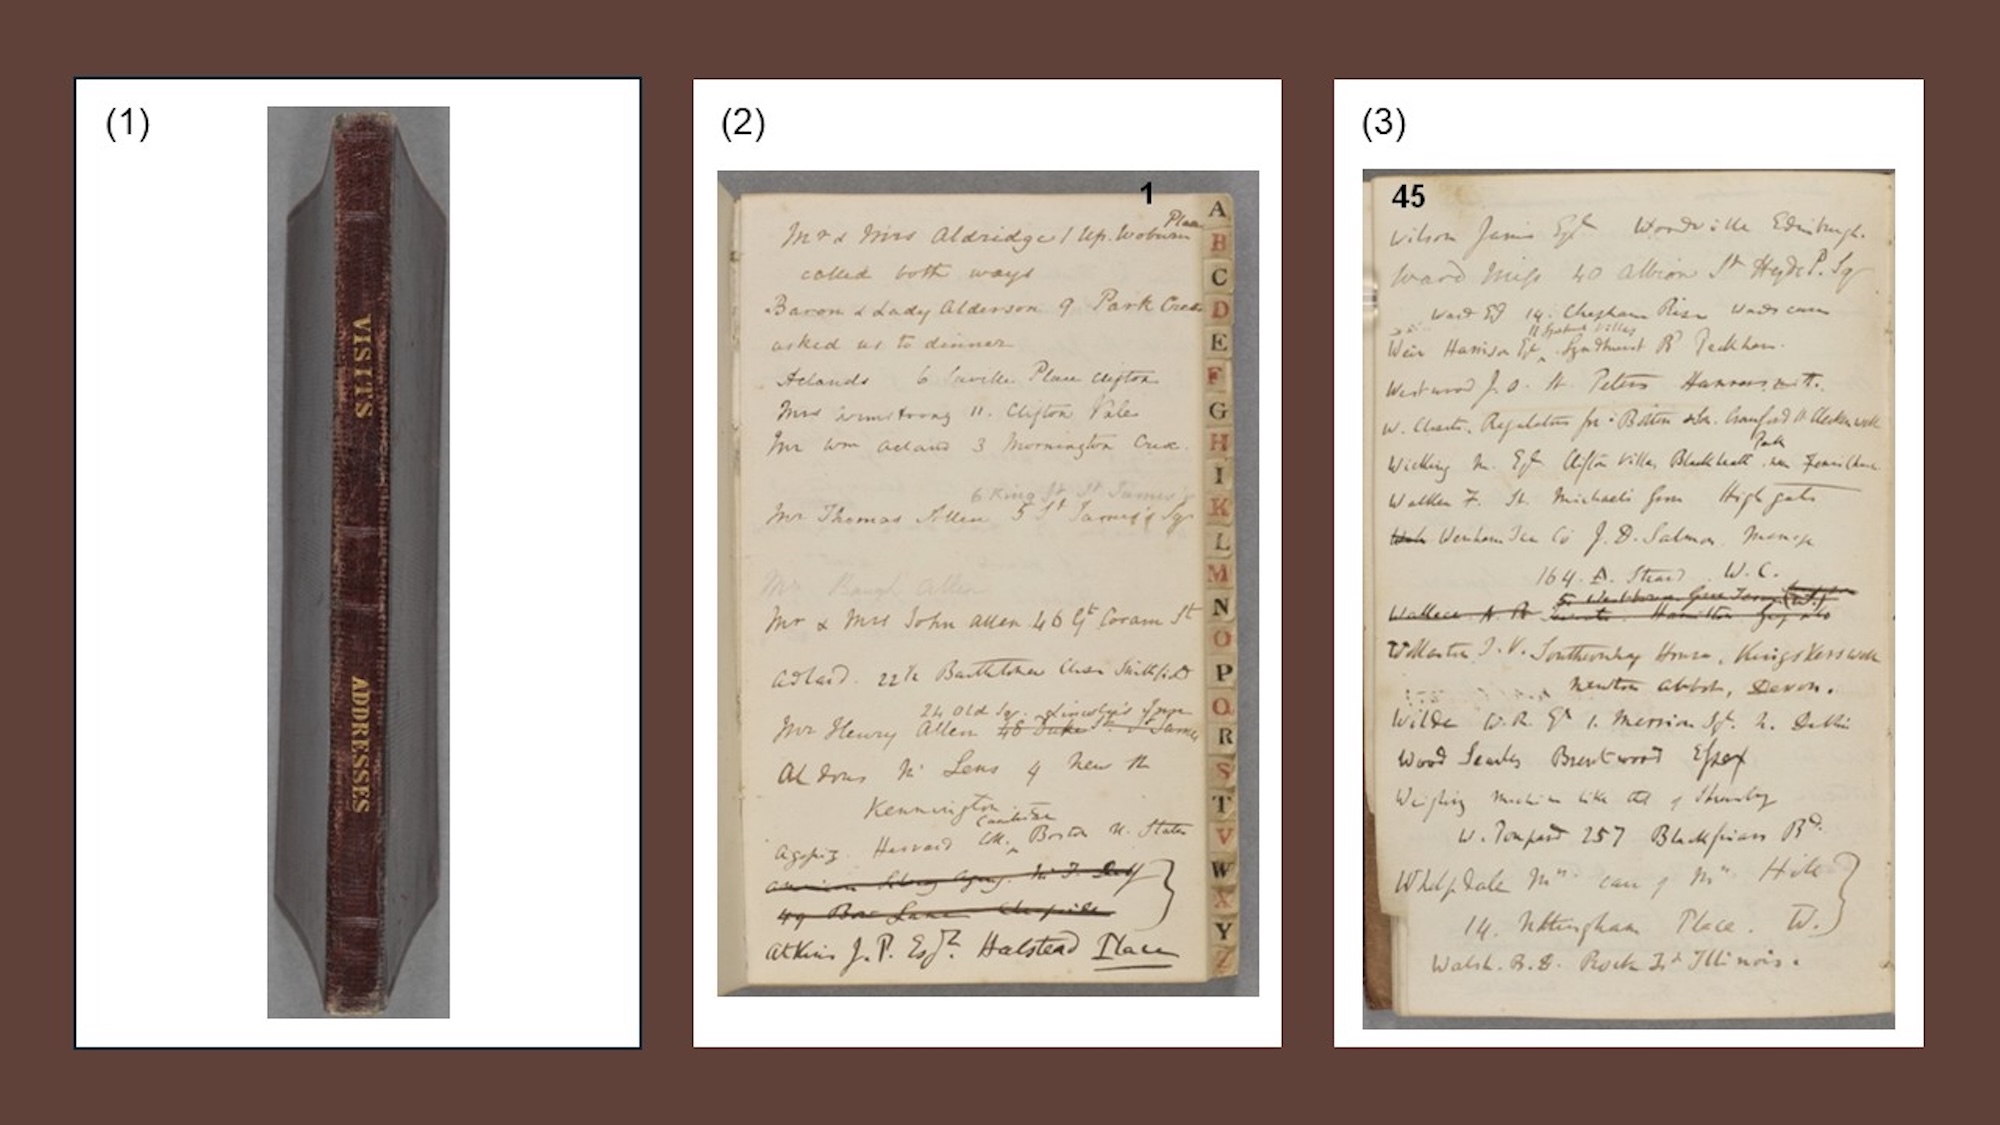 (1)
VISITS
ADDRESSES
(2)
1
Place
Mr & Mrs Aldridge 1 Up. Woburn
called both ways
Baron & Lady Alderson 9 Park Cres
asked us to dinner
Aclands 6 Saville Place Clifton
Mrs Armstrong 11. Clifton Vale
Mr Wm Acland 3 Mornington Cres.
6 King St St James's
Mr Thomas Allen 5 St James's Sq
Mr Baugh Allen
Mr & Mrs John Allen 46 Gt Coram St
Adlard. 22½ Bartholomew Close Smithfield
24 Old Sq. Lincoln's Inn
Mr Henry Allen 48 Duke St. St James
Aldous Mr Lens 4 New
Kennington
Cambridge
Agassiz. Harvard Coll. Boston U. States
American
49 Bow Lane Cheapside
Atkins J. P. Esq. Halstead Place
A
B
C
D
E
F
G
H
I
K
L
M
N
O
P
Q
R
S
T
V
W
X
Y
Z
(3)
45
Wilson James Esq Woodville Edinburgh.
Ward Miss 40 Albion St Hyde P. Sq
Ward 14. Chepham Rise
Villas
Weir Harrison Esq Lyndhurst Rd Peckham.
Westwood J. O. St. Peters Hammersmith.
W. Clerkenwell
Park
Esq Clifton Villas Blackheath
Walker F. St. Michaels Grove Highgate
Wenham Co J. D. Salmon. Manager
164. A. Strand W.C.
5. Westbourne Grove Terrace (W.)
Wallace A. R. Hamilton
Wollaston T. V. Southernhay House, Kingskerswell
Newton Abbot, Devon.
Wilde W. R. Esq 1. Merrion Sq. N. Dublin
Wood Searles Brentwood Essex
Weighing machine like that of
W. 257 Blackfriars Rd.
Whelpdale Mrs care of Mrs
14. Nottingham Place. W.
Walsh. B. D. Rock Isd Illinois.